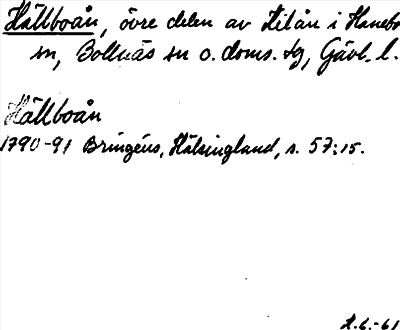 Hällboån, övre delen av Hitån i Hanebo
sn, Bollnäs sn o. doms. tg, Gävl. l.
Hällboån
1790-91 Bringéus, Hälsingland, s. 57:15.